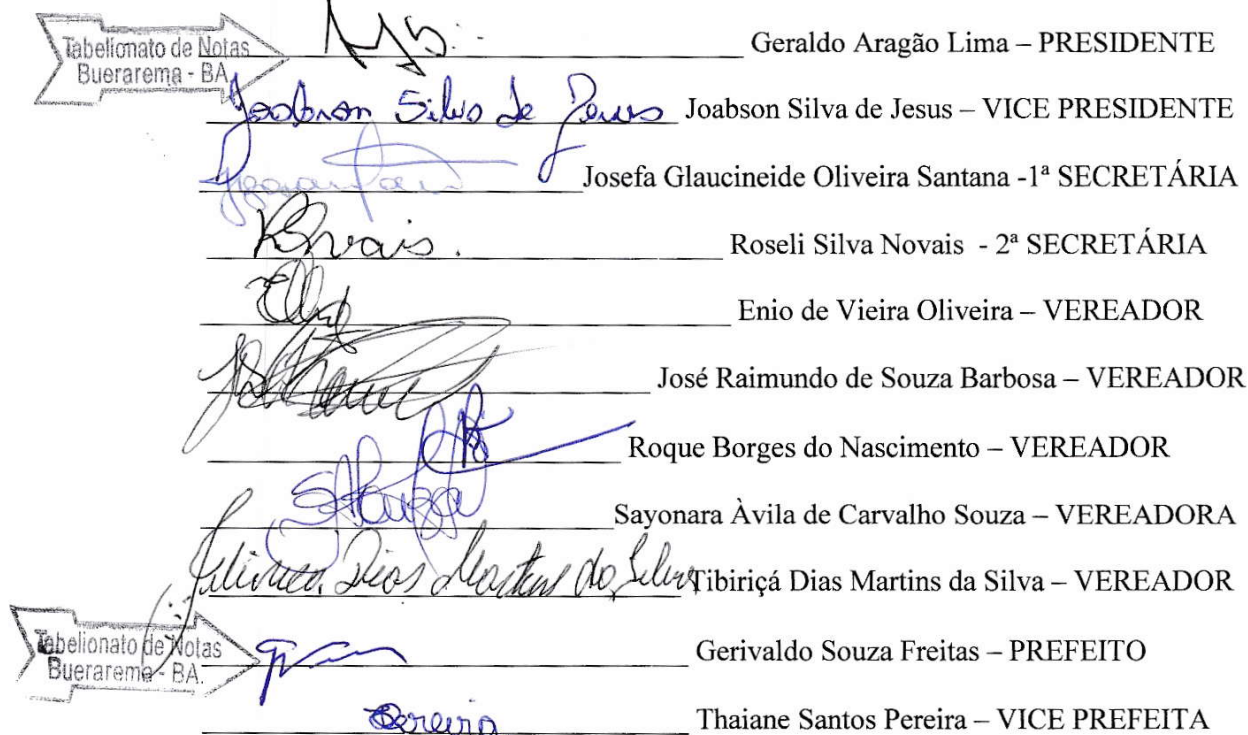 Tabelionato de Notas
Buerarema - BA.
Geraldo Aragão Lima – PRESIDENTE
Joabson Silva de Jesus Joabson Silva de Jesus – VICE PRESIDENTE
Josefa Glaucineide Oliveira Santana -1ª SECRETÁRIA
Roseli Silva Novais - 2ª SECRETÁRIA
Enio de Vieira Oliveira – VEREADOR
José Raimundo de Souza Barbosa – VEREADOR
Roque Borges do Nascimento – VEREADOR
Sayonara Àvila de Carvalho Souza – VEREADORA
Dias Martins da Silva Tibiriçá Dias Martins da Silva – VEREADOR
Tabelionato de Notas
Buerarema - BA.
Gerivaldo Souza Freitas – PREFEITO
Pereira Thaiane Santos Pereira – VICE PREFEITA